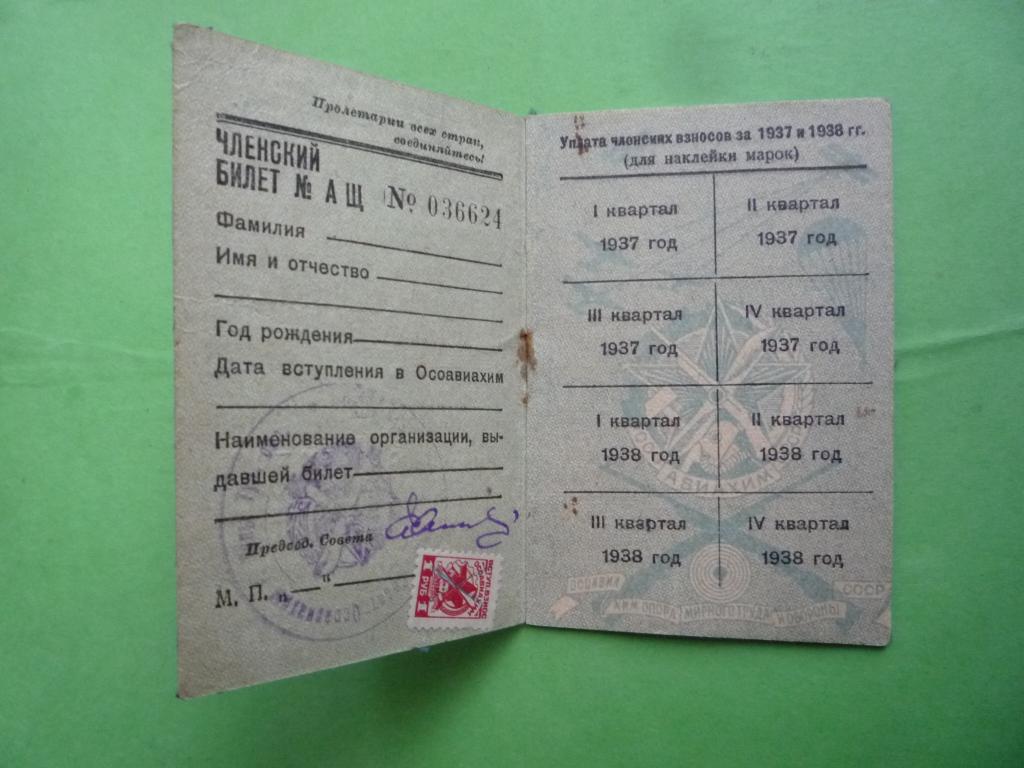 Пролетарии всех стран,
соединяйтесь!
ЧЛЕНСКИЙ
БИЛЕТ № А Щ № 036624
Фамилия
Имя и отчество
Год рождения
Дата вступления в Осоавиахим
Наименование организации, вы-
давшей билет
Председ. Совета
М. П. „ “
ВСТУП. ВЗНОС
1 РУБ 1
Уплата членских взносов за 1937 и 1938 гг.
(для наклейки марок)
I квартал
1937 год
II квартал
1937 год
III квартал
1937 год
IV квартал
1937 год
I квартал
1938 год
II квартал
1938 год
III квартал
1938 год
IV квартал
1938 год
ОСОАВИАХИМ
ОСОАВИА СССР
ХИМ ОПОРА МИРНОГО ТРУДА И ОБОРОНЫ